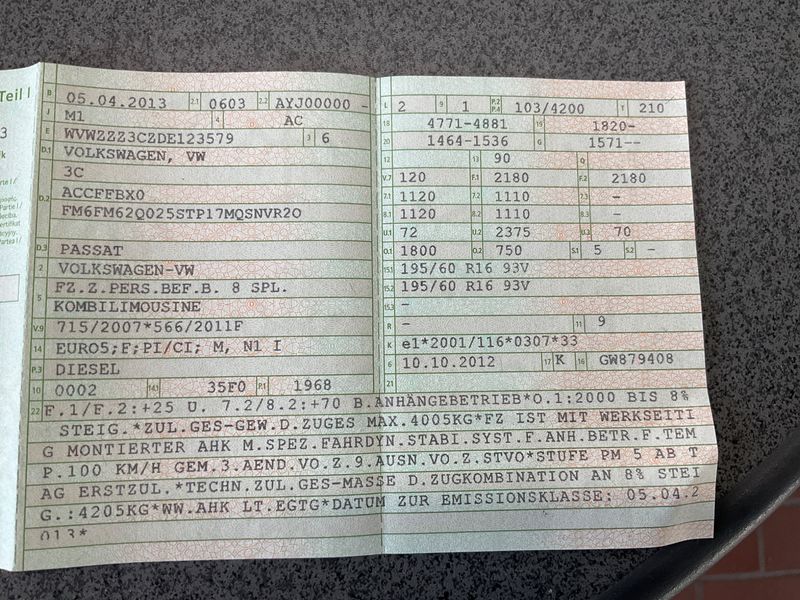 Teil I
B 05.04.2013 2.1 0603 2.2 AYJ00000 -
J M1 4. AC
E WVWZZZ3CZDE123579 3 6
D.1 VOLKSWAGEN, VW
3C
D.2 ACCFFBX0
FM6FM62Q025STP17MQSNVR2O
D.3 PASSAT
2 VOLKSWAGEN-VW
FZ.Z.PERS.BEF.B. 8 SPL.
5 KOMBILIMOUSINE
V.9 715/2007*566/2011F
14 EURO5;F;PI/CI; M, N1 I
P.3 DIESEL
10 0002 14.1 35F0 P.1 1968
L 2 9 1 P.2 P.4 103/4200 T 210
18 4771-4881 19 1820-
20 1464-1536 G 1571--
12 13 90 Q
V.7 120 F.1 2180 F.2 2180
7.1 1120 7.2 1110 7.3 -
8.1 1120 8.2 1110 8.3 -
U.1 72 U.2 2375 U.3 70
O.1 1800 O.2 750 S.1 5 S.2 -
15.1 195/60 R16 93V
15.2 195/60 R16 93V
15.3 -
R - 11 9
K e1*2001/116*0307*33
6 10.10.2012 17 K 16 GW879408
21
22 F.1/F.2:+25 U. 7.2/8.2:+70 B.ANHÄNGEBETRIEB*O.1:2000 BIS 8%
STEIG.*ZUL.GES-GEW.D.ZUGES MAX.4005KG*FZ IST MIT WERKSEITI
G MONTIERTER AHK M.SPEZ.FAHRDYN.STABI.SYST.F.ANH.BETR.F.TEM
P.100 KM/H GEM.3.AEND.VO.Z.9.AUSN.VO.Z.STVO*STUFE PM 5 AB T
AG ERSTZUL.*TECHN.ZUL.GES-MASSE D.ZUGKOMBINATION AN 8% STEI
G.:4205KG*WW.AHK LT.EGTG*DATUM ZUR EMISSIONSKLASSE: 05.04.2
013*